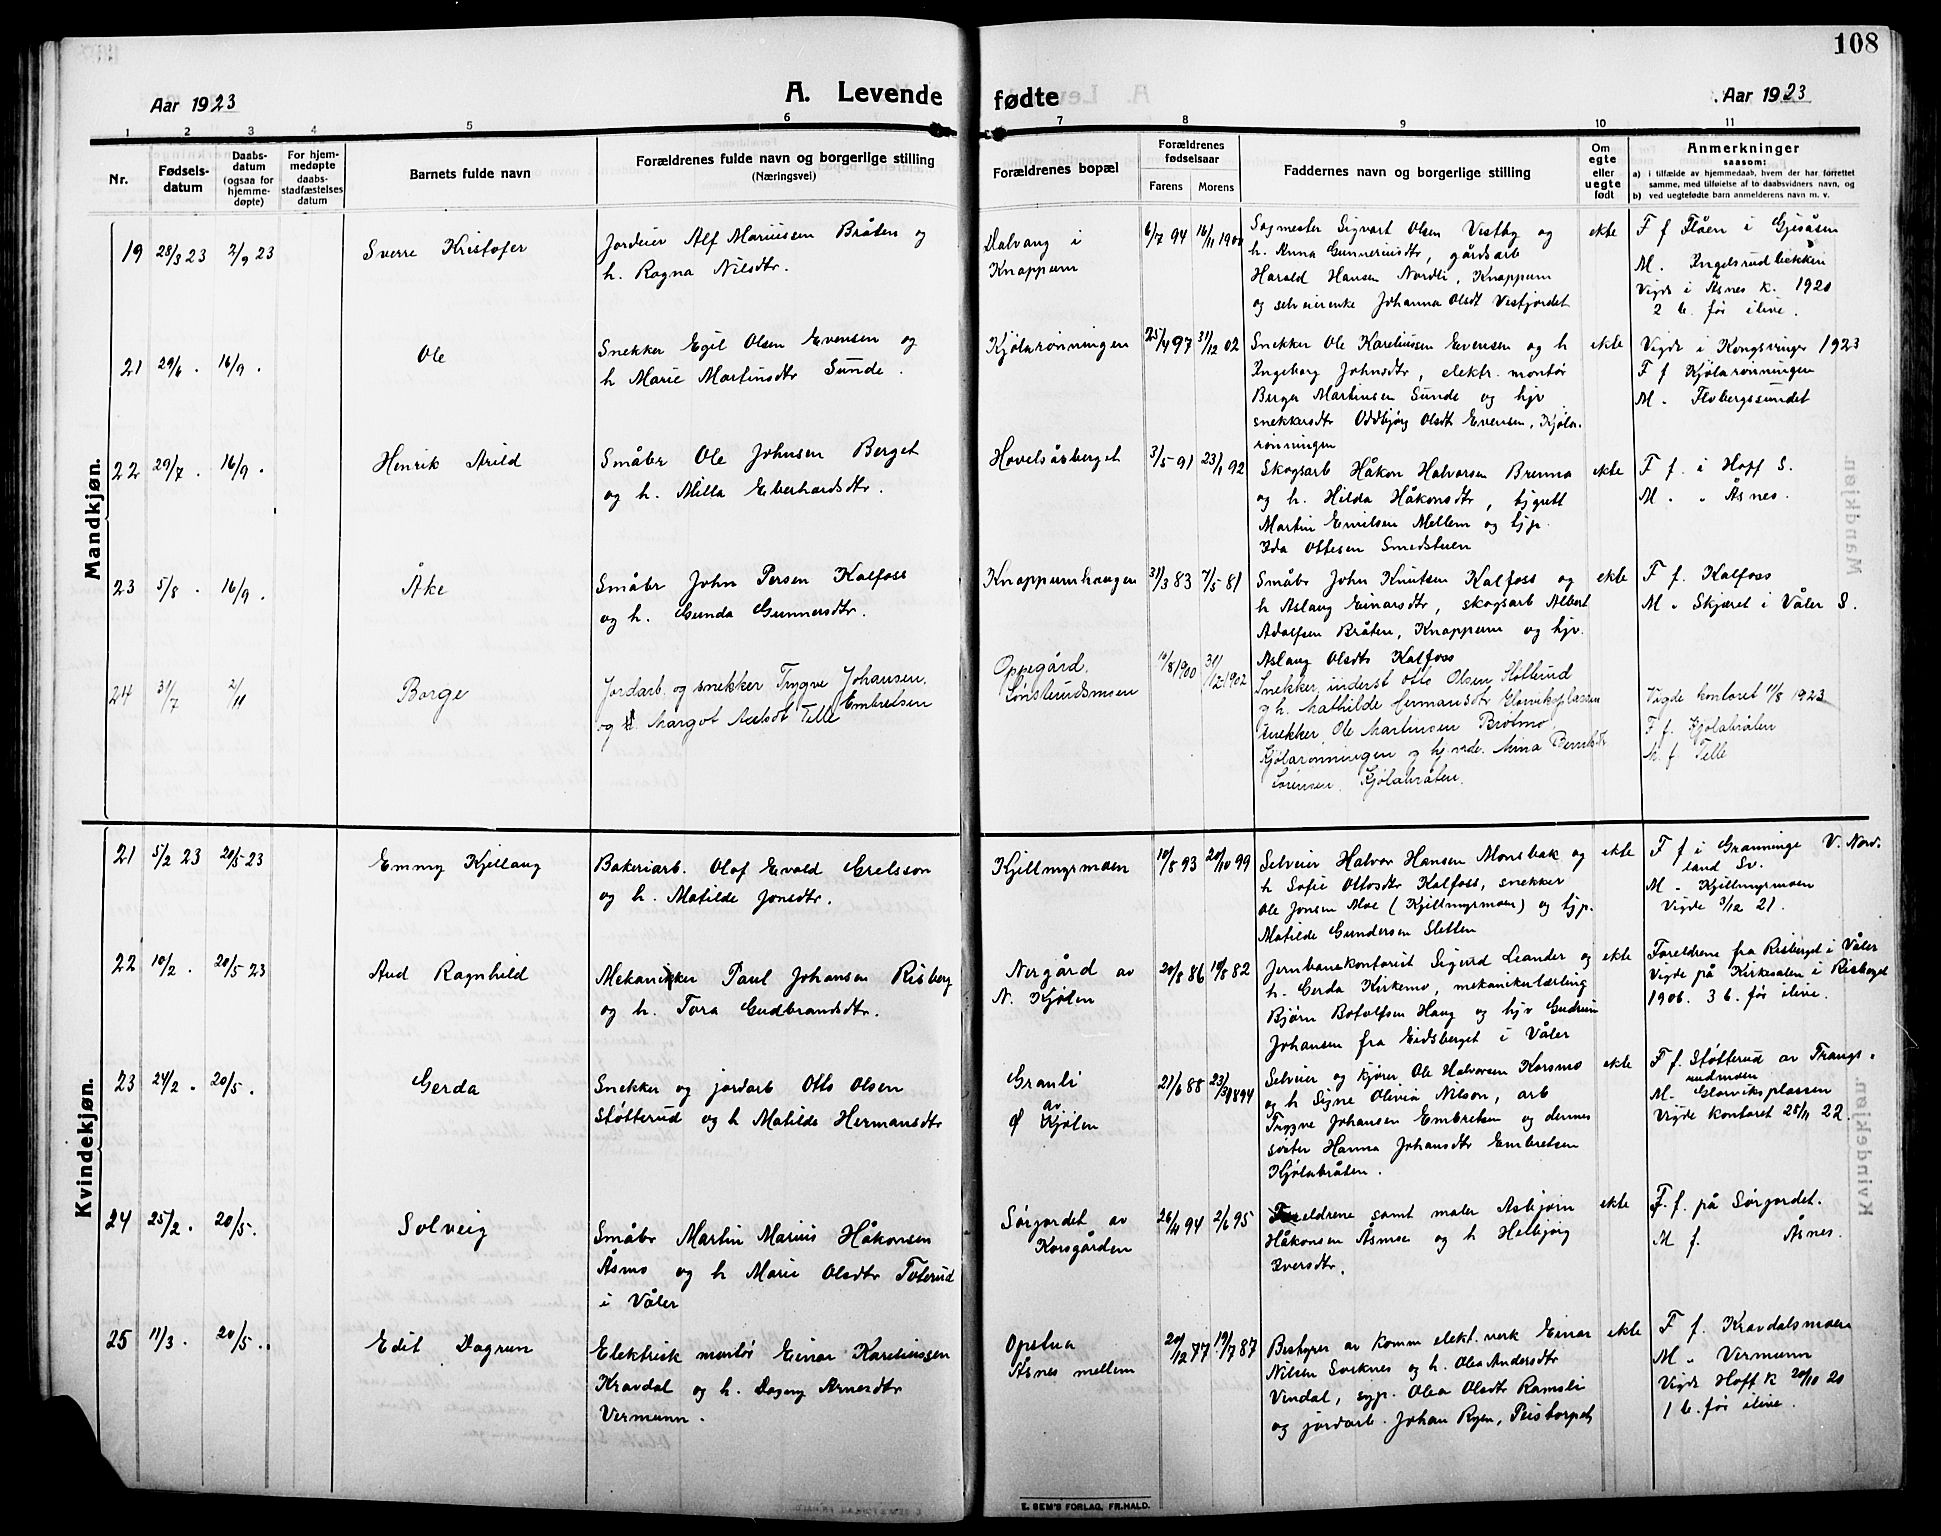 108
Aar 1923
A. Levende
fødte
Aar 1923
1 2 3 4 5 6 7 8 9 10 11
Nr.
Fødsels-
datum
Daabs-
datum
(ogsaa for
hjemme-
døpte)
For hjem-
medøpte
daabs-
stadfæstelses
datum
Barnets fulde navn
Forældrenes fulde navn og borgerlige stilling
(Næringsvei)
Forældrenes bopæl
Forældrenes
fødselsaar
Farens Morens
Faddernes navn og borgerlige stilling
Om
egte
eller
uegte
født
Anmerkninger
saasom:
a) i tilfælde av hjemmedaab, hvem der har forrettet
samme, med tilføielse af to daabsvidners navn, og
b) ved uegtefødte barn anmelderens navn m. v.
Mandkjøn.
19 28/3 23 2/9 23
Sverre Kristofer
Jordeier Alf Mariussen Bråten og
h. Ragna Nilsdtr.
Dalvang i
Knappum
6/7 94 16/11 1900
Sagmester Sigvart Olsen Vestby og
h. Anna Gunneriusdtr, gårdsarb
Harald Hansen Nordli, Knappum
og selveierenke Johanna Olsdt Vesfjordet
ekte
F f Flåen i Gjesåsen
M. Engelsrudbekken
Vigde i Åsnes k. 1920
2 b. før ilive.
21 29/6 . 16/9 .
Ole
Snekker Egil Olsen Evensen og
h Marie Martinsdtr Sunde .
Kjølarønningen
25/4 97 31/12 02
Snekker Ole Kareliussen Evensen og h
Ingeborg Johnsdtr, elektr. montør
Berger Martinsen Sunde og hjv
snekkersdtr Oddbjørg Olsdt Evensen, Kjøla-
rønningen
ekte
Vigde i Kongsvinger 1923
F f Kjølarønningen
M . Flobergssundet
22 29/7 . 16/9 .
Henrik Arild
Småbr Ole Johnsen Berget
og h. Milla Eberhardsdtr.
Hovelsåsberget
3/5 91 23/1 92
Skogsarb Håkon Halvorsen Brenna
og h. Hilda Håkonsdtr, tjgutt
Martin Emilsen Mellem og tjp.
Ida Ottesen Smedstuen
ekte
F f. i Hoff S.
M . " Åsnes.
23 5/8 . 16/9 .
Åke
Småbr John Persen Kalfoss
og h. Gunda Gunnersdtr.
Knappumhaugen
31/3 83 7/5 81
Småbr John Knutsen Kalfoss og
h Aslaug Einarsdtr, skogsarb Albert
Adolfsen Bråten, Knappum og hjv.
Aslaug Olsdtr Kalfoss
ekte
F f. Kalfoss
M . Skjæret i Våler S.
24 31/7 2/11
Borge
Jordarb. og snekker Trygve Johansen
Embretsen
og Margot Axelsdt Telle
Oppegård,
Lønsterudsmoen
10/8 1900 31/12 1902
Snekker, inderst Otto Olsen Støtterud
og h. Mathilde Hermansdtr Glorviksplassen
snekker Ole Martinsen Brotmo,
Kjølarønningen og hj.vde. Mina Berntsdtr
Sørensen, Kjølabråten.
Vigde kontoret 11/8 1923
F. f. Kjølabråten
M. f. Telle
Kvindekjøn.
21 5/2 23 20/5 23
Emmy Kjellaug
Bakeriarb. Olof Evald Erelsson
og h. Matilde Jonsdtr.
Kjellmyrmoen
10/8 93 20/10 99
Selveier Halvor Hansen Monsbak og
h Sofie Ottosdtr Kalfoss, snekker
Ole Jonsen Moe (Kjellmyrmoen) og tjp.
Matilde Gundersen Sletten
ekte
F f i Granninge V. Nord-
land Sv.
M . Kjellmyrmoen
Vigde 3/12 21.
22 10/2 . 20/5 23
Aud Ragnhild
Mekaniker Paul Johansen Risberg
og h. Tora Gudbrandsdtr.
Nergård av
N. Kjølen
20/8 86 19/8 82
Jernbanekontorist Sigurd Leander og
h. Gerda Kirkemo, mekanikerlærling
Bjørn Botolfsen Haug og hjv Gudrun
Johansen fra Eidsberget i Våler
ekte
Foreldrene fra Risberget i Våler
Vigde på Kirkesalen i Risberget
1906. 3 b. før ilive.
23 24/2 . 20/5 .
Gerda
Snekker og jordarb Otto Olsen
Støtterud og h Matilde Hermansdtr
Granli
av
Ø Kjølen
21/6 88 23/3 1894
Selveier og kjører Ole Halvorsen Korsmo
og h Signe Olivia Nilson, arb
Trygve Johansen Embretsen og dennes
søster Hanna Johansdtr Embretsen
Kjølabråten.
ekte
F f. Støtterud av Trangs-
rudmoen
M. Glorviksplassen
Vigde kontoret 25/11 22.
24 25/2 . 20/5 .
Solveig
Småbr Martin Marius Håkonsen
Åsmo og h Marie Olsdtr Toterud
i Våler
Sørjordet av
Korsgården
26/4 94 2/6 95
Foreldrene samt maler Asbjørn
Håkonsen Åsmoe og h Helbjørg
Iversdtr.
ekte
F. f. på Sørjordet.
M f. Åsnes.
25 11/3 . 20/5 .
Edit Dagrun
Elektrisk montør Einar Kareliussen
Kravdal og h. Dagny Arnesdtr
Vermunn.
Opstua
Åsnes mellem
20/12 77 19/7 87
Bestyrer av komm elekt. verk Einar
Nilsen Sorknes og h. Olea Andersdtr
Vindal, syp. Olea Olsdtr Ramsli
og jordarb. Johan Ryen, Peistorpet
ekte
F f. Kravdalsmoen
M " Vermunn
Vigde Hoff k 20/10 20
1 b. før ilive.
E. SEM'S FORLAG, FR.HALD.